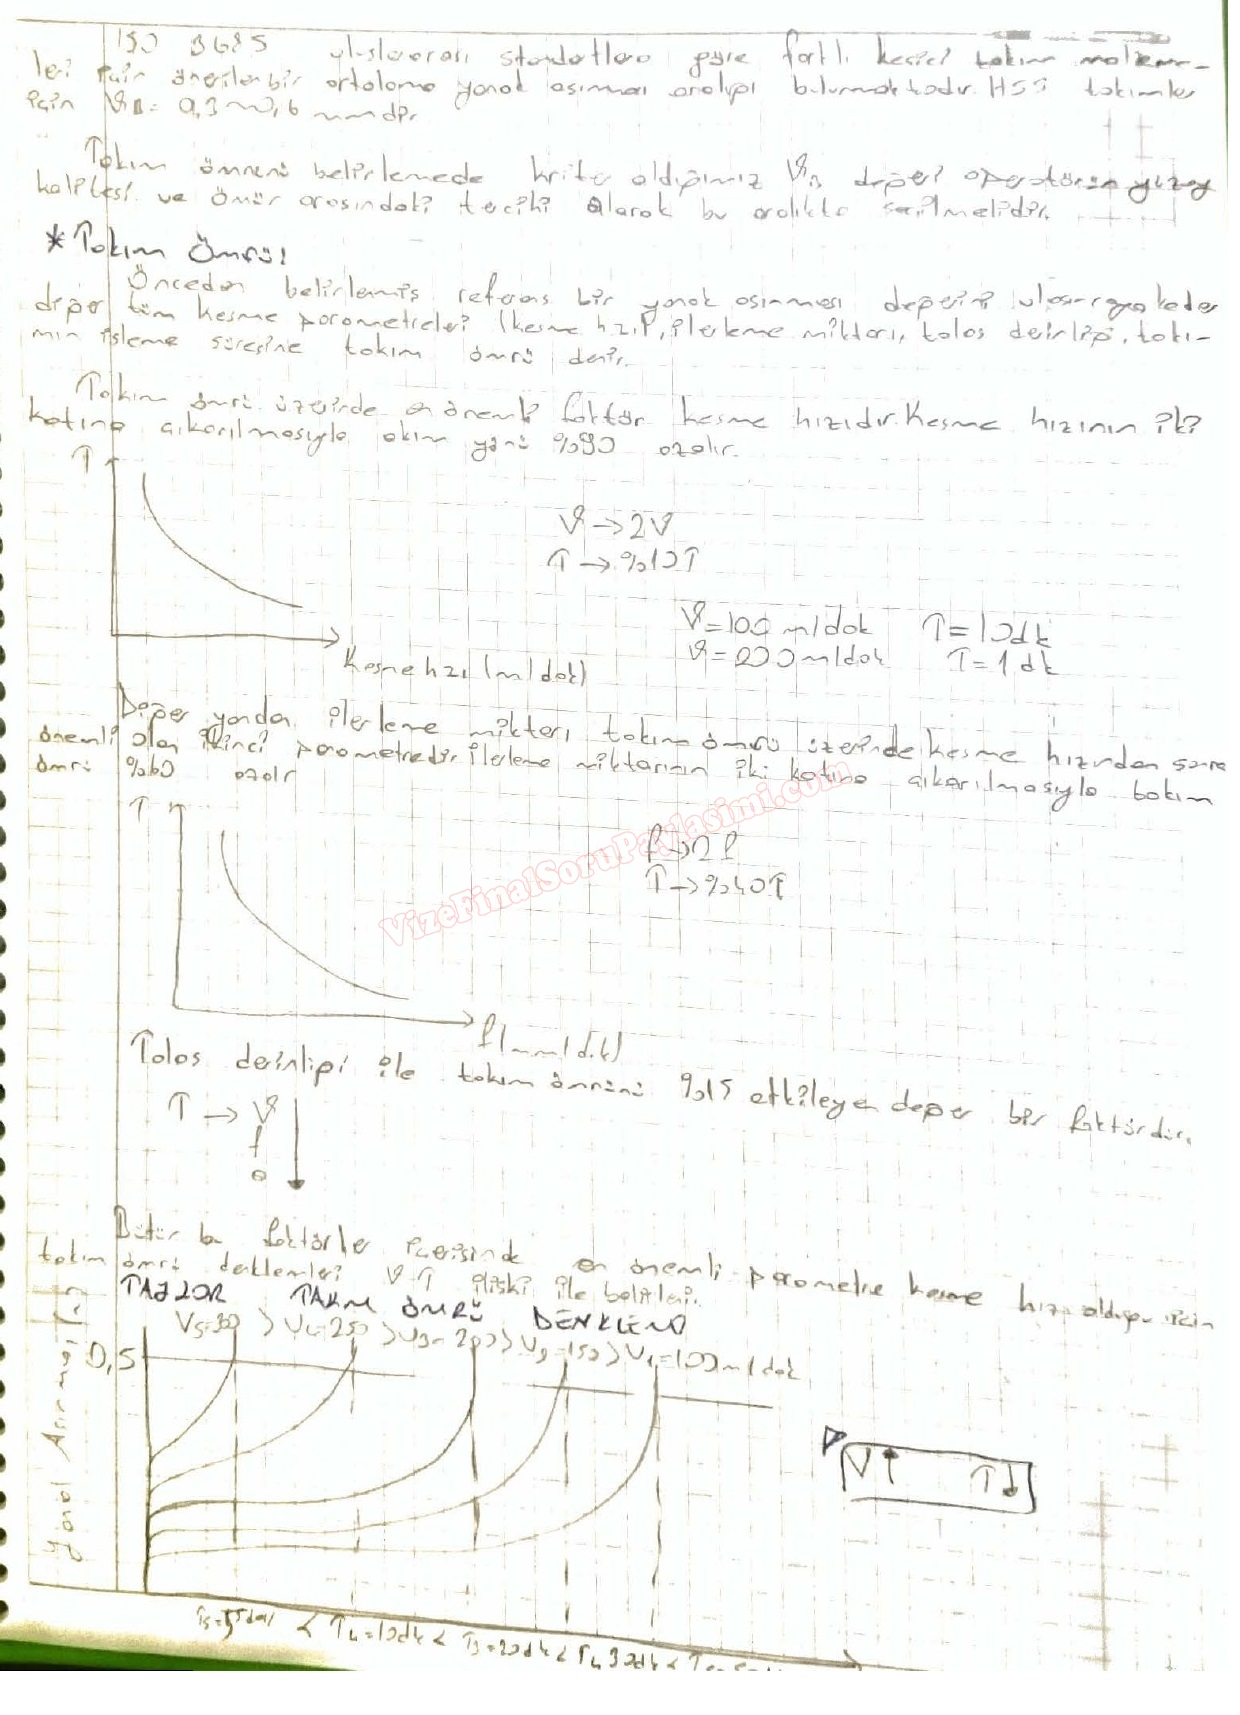 ISO 3685 uluslararası standartlara göre farklı kesici takım malzeme-
leri için önerilen bir ortalama yanak aşınması aralığı bulunmaktadır. HSS takımlar
için VB = 0,3 ~ 0,6 mm dir.
Takım ömrünü belirlemede kriter aldığımız VB değeri operatörün yüzey
kalitesi ve ömür arasındaki tercihi olarak bu aralıkta seçilmelidir.
* Takım Ömrü:
Önceden belirlemiş referans bir yanak aşınması değerini kadar
diğer tüm kesme parametreleri (kesme hızı, ilerleme miktarı, talaş derinliği, takı-
mın işleme süresine takım ömrü denir.
Takım ömrü üzerinde en önemli faktör kesme hızıdır. Kesme hızının iki
katına çıkarılmasıyla takım ömrü %90 azalır.
T
V → 2V
T → %10T
V=100 m/dak T=10dk
V=200m/dak T=1dk
Kesme hızı (m/dak)
Diğer yandan ilerleme miktarı takım ömrü üzerinde kesme hızından sonra
önemli olan ikinci parametredir. ilerleme miktarının iki katına çıkarılmasıyla takım
ömrü %60 azalır
T
f → 2f
T → %40T
VizeFinalSoruPaylasimi.com
f(mm/dk)
Talaş derinliği ile takım ömrünü %15 etkileyen değer bir faktördür.
T → V
f
a
Bütün bu faktörler içerisinde en önemli parametre kesme hızı olduğu için
takım ömrü denklemleri V T ilişki ile belirlenir.
TAYLOR TAKIM ÖMRÜ DENKLEMİ
V5=300 > V4=250 > V3=200 > V2=150 > V1=100m/dak
0,5
Yanak Aşınması
V↑ T↓
T5=5dak < T4=10dk < T3=20dk < T4 30dk <